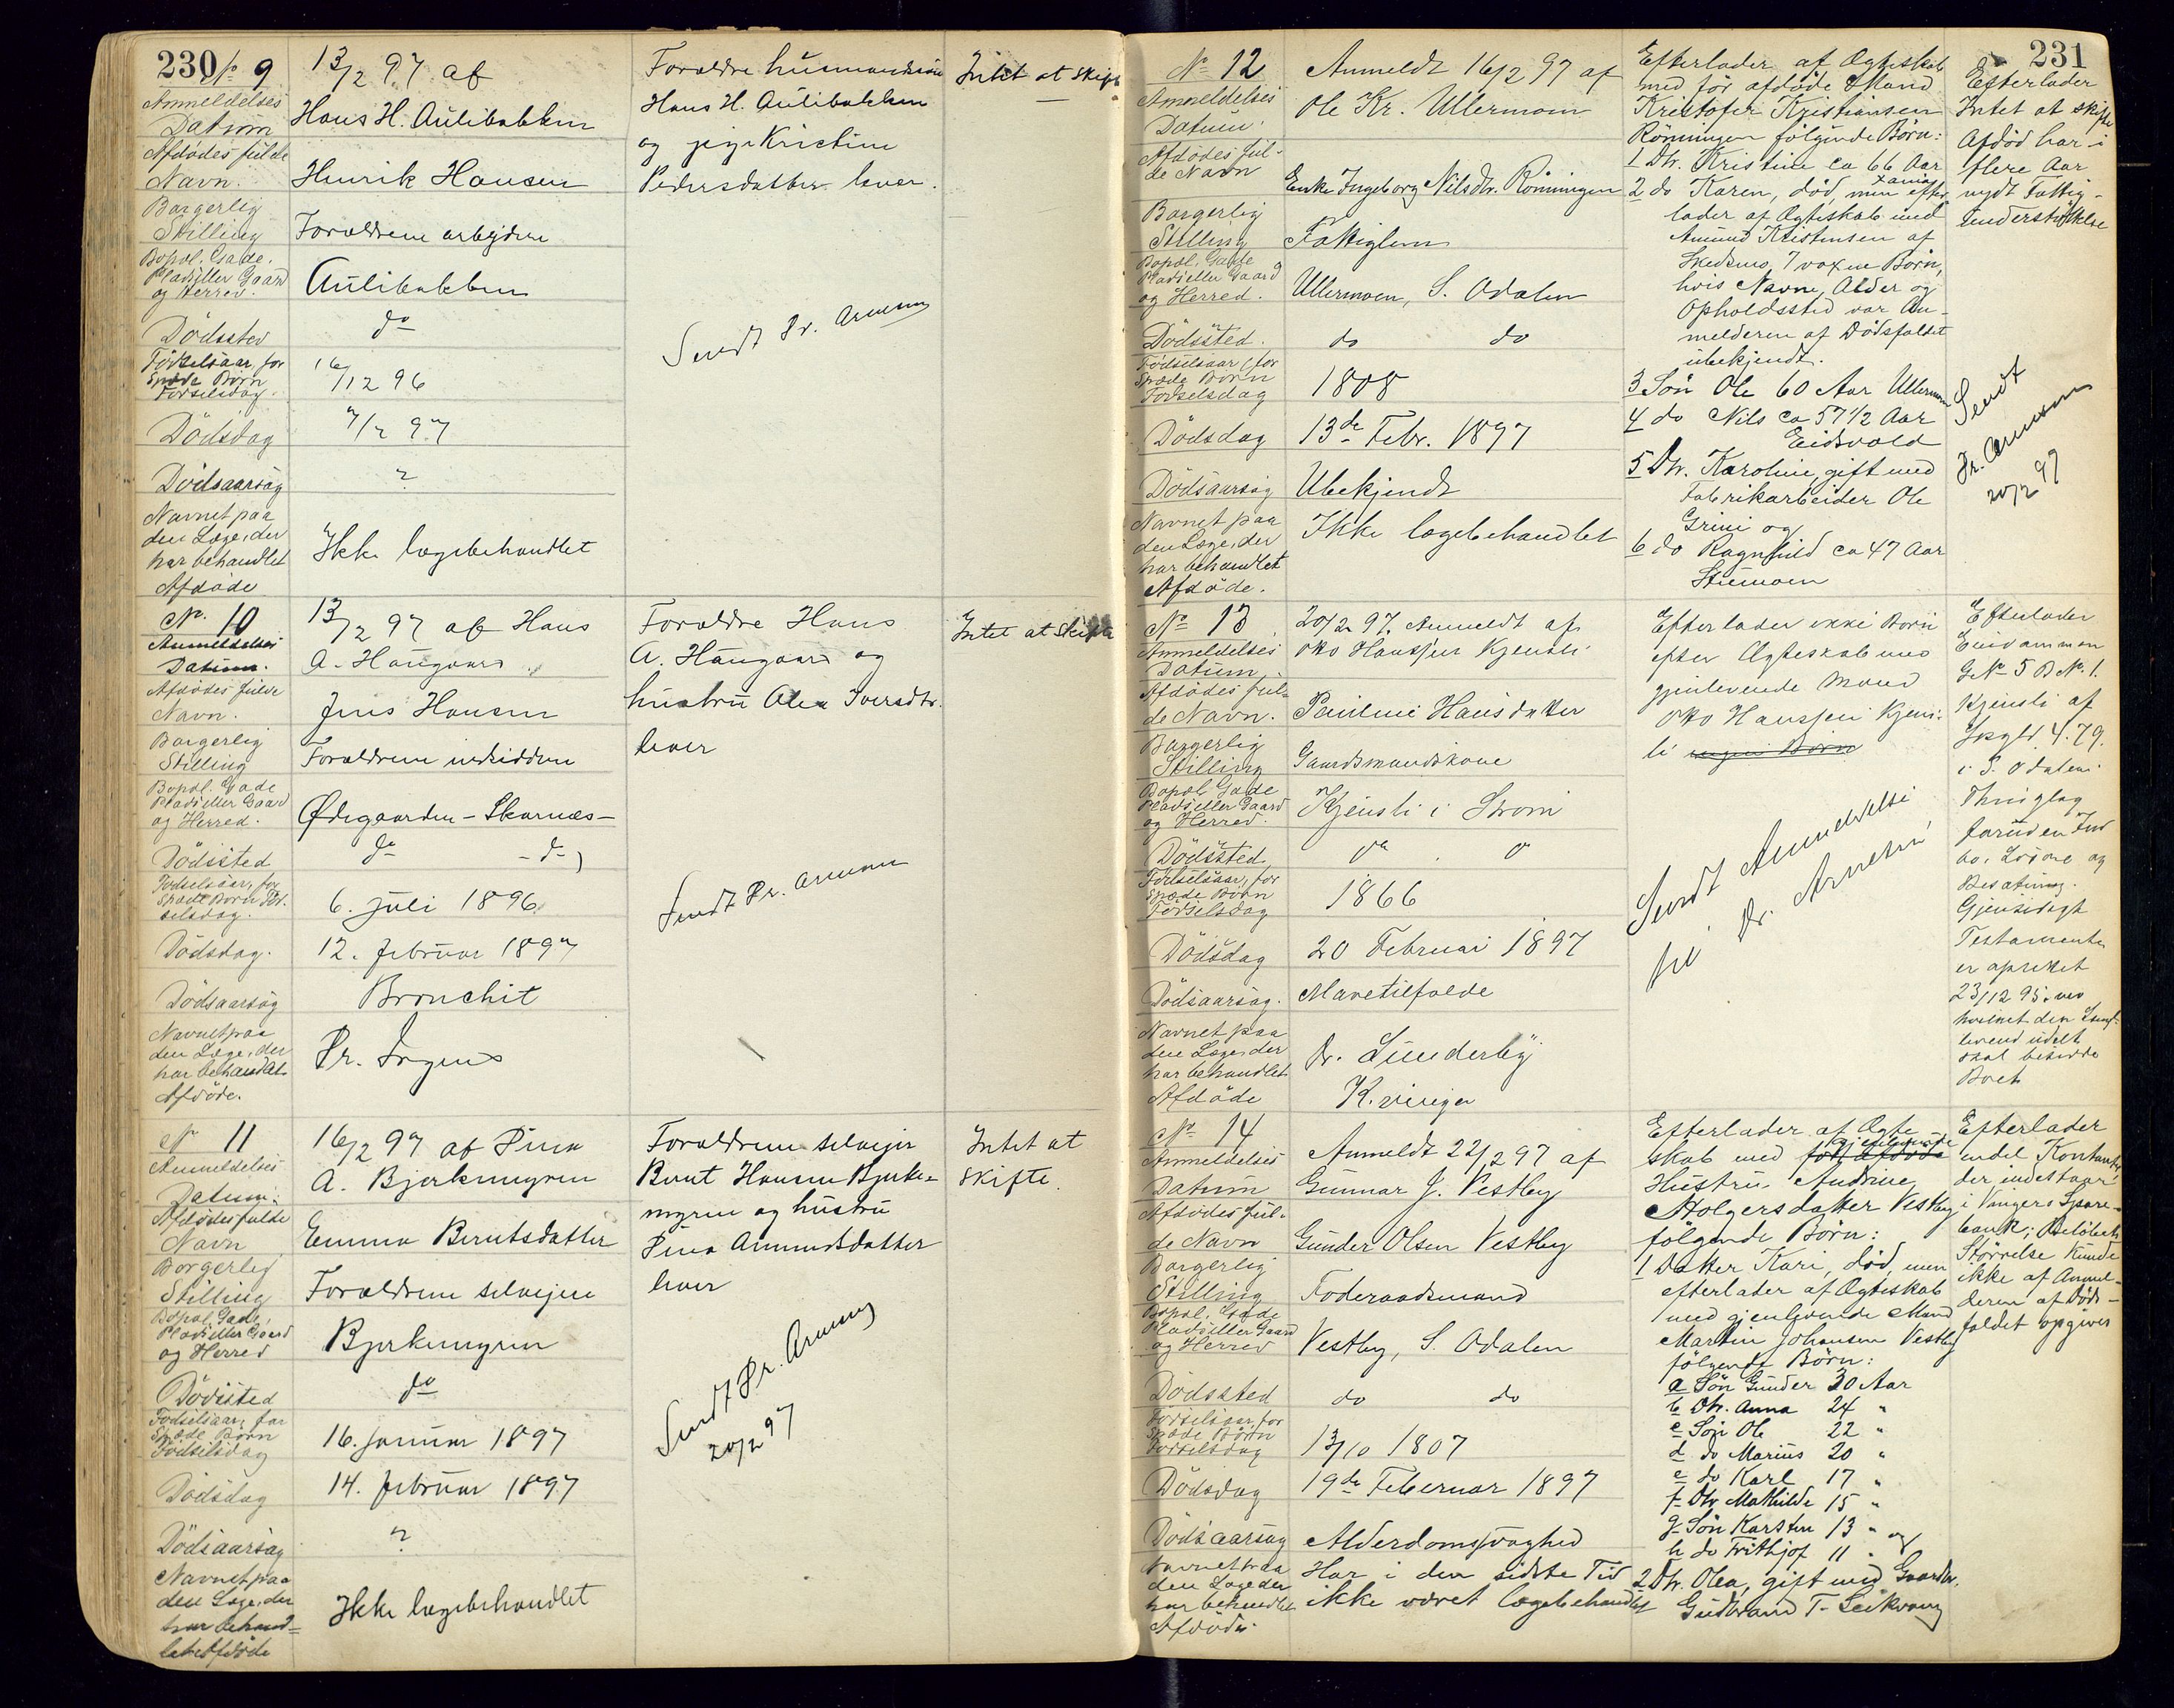 230
No 9
Anmeldelses
Datum
13/2 97 af
Hans H. Aulibakken
Afdødes fulde
Navn.
Henrik Hansen
Borgerlig
Stilling
Forældrene arbejdere
Bopæl. Gade,
Plads eller Gaard
og Herred.
Aulibakken
Dödssted
do
Födselsaar, for
Spæde Börn
Födselsdag.
16/12 96
Dödsdag
97
Dödsaarsag
?
Navnet paa
den Læge, der
har behandlet
Afdöde
Ikke lægebehandlet
Forældre husmand
Hans H. Aulibakken
og pige Kristine
Pedersdatter lever.
Sendt Hr. Arnesen
Intet at skifte
No. 10
Anmeldelses
Datum.
13/2 97 af Hans
A. Haugaard
Afdödes fulde
Navn.
Jens Hansen
Borgerlig
Stilling
Forældrene inderster
Bopæl. Gade
Plads eller Gaard
og Herred.
Ødegaarden - Skarnæs -
Dödssted
do - d-)
Födselsaar, for
Spæde Börn Föd-
selsdag.
6. juli 1896
Dödsdag.
12. februar 1897
Dödsaarsag
Bronchit
Navnet paa
den Læge, der
har behandlet
Afdöde.
Dr.
Forældre Hans
A. Haugaard og
hustru Olea Iversdtr.
lever
Sendt Hr. Arnesen
Intet at skifte
No 11
Anmeldelses
Datum.
16/2 97 af Pina
A. Bjerkemyren
Afdödes fulde
Navn
Emma Berntsdatter
Borgerlig
Stilling
Forældrene selveiere
Bopæl. Gade,
Plads eller Gaard
og Herred
Bjerkemyren
Dödssted
do
Födselsaar, for
Spæde Börn
Födselsdag
16. januar 1897
Dödsdag
14. februar 1897
Dödsaarsag
?
Navnet paa
den Læge, der
har behand-
let Afdöde
Ikke lægebehandlet
Forældrene selveier
Bernt Hansen Bjerke-
myren og hustru
Pina Amundsdatter
lever
Sendt Hr. Arnesen
20/2 97
Intet at
skifte.
231
No 12
Anmeldelses
Datum.
Anmeldt 16/2 97 af
Ole Kr. Ullermoen
Afdödes ful-
de Navn
Enke Ingeborg Nilsdtr. Rönningen
Borgerlig
Stilling
Fattiglem
Bopæl. Gade
Plads eller Gaard
og Herred.
Ullermoen, S. Odalen
Dödssted.
do do
Födselsaar, for
Spæde Börn
Födselsdag
1808
Dödsdag
13de Febr. 1897
Dödsaarsag
Ubekjendt
Navnet paa
den Læge, der
har behandlet
Afdöde.
Ikke lægebehandlet
Efterlader af Ægteskab
med för afdöde Mand
Kristofer Kristiansen
Rönningen fölgende Börn:
1 Dtr. Kristine ca 66 Aar
2 do Karen, död, men efter-
lader af Ægteskab med
Amund Kristensen af
Skedsmo, 7 voxne Börn,
hvis Navne, Alder og
Opholdssted var An-
melderen af Dödsfaldet
ubekjendt.
3 Sön Ole 60 Aar Ullermoen
4 do Nils ca 57 1/2 Aar
Eidsvold
5 Dtr. Karoline, gift med
Fabrikarbeider Ole
Grini og
6 do Ragnhild ca 47 Aar
Efterlader
Intet at skifte
Afdöd har i
flere Aar
nydt Fattig-
understöttelse
Sendt
Hr. Arnesen
20/2 97
No 13
Anmeldelses
Datum
20/2 97. Anmeldt af
Otto Hanssen Kjensli
Afdödes ful-
de Navn.
Pauline Hansdatter
Borgerlig
Stilling
Gaardmandskone
Bopæl. Gade
Plads eller Gaard
og Herred.
Kjensli i Strøm
Dödssted
Födselsaar, for
Spæde Börn
Födselsdag
1866
Dödsdag
20 Februar 1897
Dödsaarsag.
Mavetilfælde
Navnet paa
den Læge, der
har behandlet
Afdöde
Dr. Lunderbÿ
K.vinger
Efterlader ikke Börn
efter Ægteskab med
gjenlevende Mand
Otto Hanssen Kjens-
li
Sendt Anmeldelse
til Hr. Arnesen
Efterlader
Eiendommen
G No 5 B No. 1.
Kjensli af
Skyld 4.79.
i S. Odalen
Thinglag
foruden Ind
bo, Lösöre og
Besætning.
Gjensidigt
Testamente
er oprettet
23/12 95. ved
hvilket den
levende udelt
skal besidde
Boet
No 14
Anmeldelses
Datum
Anmeldt 22/2 97 af
Gunnar J. Vestby
Afdödes ful-
de Navn
Gunder Olsen Vestby
Borgerlig
Stilling
Foderaadsmand
Bopæl. Gade
Plads eller Gaard
og Herred
Vestby, S. Odalen
Dödssted
do do
Födselsaar, for
Spæde Börn
Födselsdag
13/10 1807
Dödsdag
19de Februar 1897
Dödsaarsag
Alderdomssvaghed
Navnet paa
den Læge der
har behandlet
Afdöde.
Har i den sidste Tid
ikke været lægebehandlet
Efterlader af Ægte-
skab med för afdöde gjenlevende
Hustru Andrine
Holgersdatter Vestby
fölgende Börn:
1 Datter Kari, död, men
efterlader af Ægteskab
med gjenlevende Mand
Martin Johansen Vestby
fölgende Börn:
a Sön Gunder 30 Aar
b Dtr. Anna 24 "
c Sön Ole 22 "
d do Marius 20 "
e do Karl 17 "
f Dtr Mathilde 15 "
g Sön Karsten 13 " og
h do Frithjof 11 "
2 Dtr. Olea, gift med Gaardbr.
Gudbrand T.
Efterlader
endel Kontanter
der indestaar
i Vinger Spare-
bank; Belöbets
Störrelse kunde
ikke af Anmel-
deren af Döds-
faldet opgives